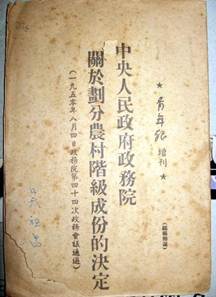 ★青年報增刊★
中央人民政府政務院
關於劃分農村階級成份的決定
(一九五零年八月四日政務院第四十四次政務會議通過)